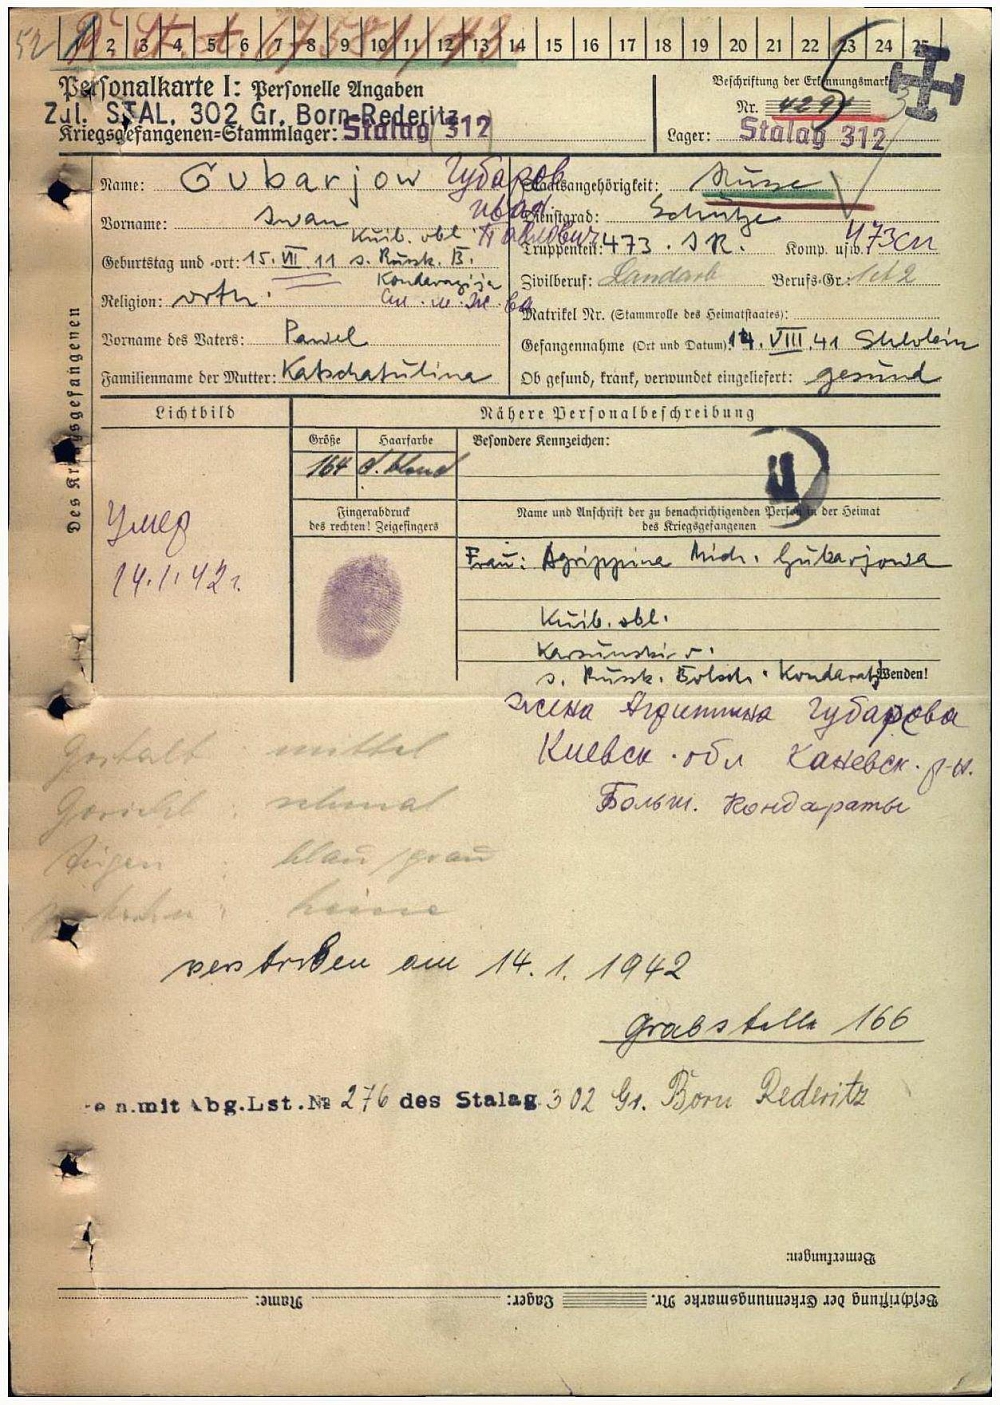 52 R. St. A. 1 2 3 4 5 6 7 8 9 10 11 12 13 14 15 16 17 18 19 20 21 22 23 24 25
Personalkarte I: Personelle Angaben
Beschriftung der Erkennungsmarke
Zul. STAL. 302 Gr. Born-Rederitz
Nr. 4294 5
Kriegsgefangenen-Stammlager: Stalag 312
Lager: Stalag 312
Des Kriegsgefangenen
Name: Gubarjow Губаров
Vorname: Iwan Иван
Kuib. obl. Павлович
Geburtstag und -ort: 15. VII. 11 s. Russk. B.
Kondaragija
Religion: orth.
Vorname des Vaters: Pawel
Familienname der Mutter: Katschatulina
Staatsangehörigkeit: Russe
Dienstgrad: Schütze
Truppenteil: 473. I.R. Komp. usw.: 473 сп
Zivilberuf: Landarb Berufs-Gr.:
Matrikel Nr. (Stammrolle des Heimatstaates):
Gefangennahme (Ort und Datum): 14. VIII. 41 Shlobin
Ob gesund, krank, verwundet eingeliefert: gesund
Lichtbild
Nähere Personalbeschreibung
Größe Haarfarbe Besondere Kennzeichen:
164 d. blond
Fingerabdruck
des rechten! Zeigefingers
Name und Anschrift der zu benachrichtigenden Person in der Heimat
des Kriegsgefangenen
Умер
14.1.42г.
Frau: Agrippina Mich. Gubarjowa
Kuib. obl.
Karsunski r.
s. Russk. Bolsch. Kondarat
Wenden!
жена Агрипина Губарова
Киевск. обл Каневск. р-н.
Больш. Кондараты
Gestalt: mittel
Gesicht: schmal
Augen: blau/grau
keine
verstorben am 14. 1. 1942
Grabstelle 166
mit Abg.Lst.№ 276 des Stalag 302 Gr. Born Rederitz
Bemerkungen:
Beschriftung der Erkennungsmarke Nr. Lager: Name: